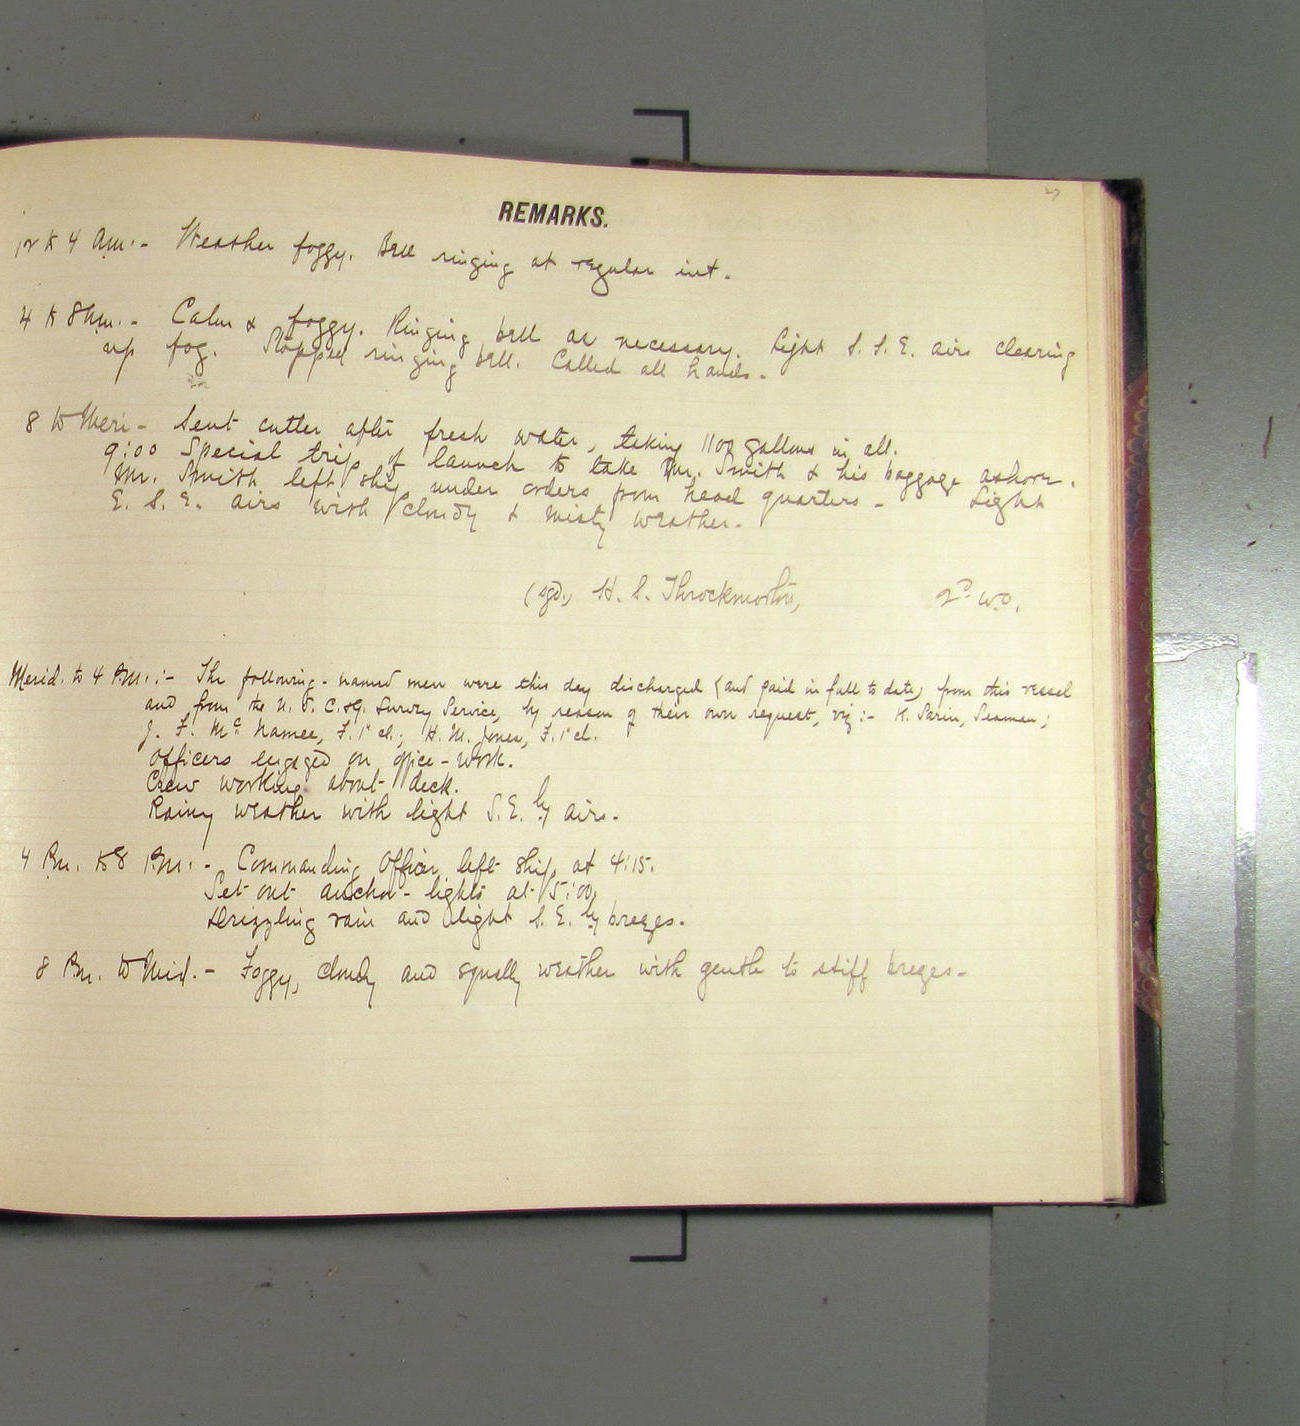 27
REMARKS.
12 to 4 Am:- Weather foggy. Bell ringing at regular int.
4 to 8 Am.- Calm & foggy. Ringing bell as necessary. Light S. S. E. airs clearing
up fog. Stopped ringing bell. Called all hands.
8 to Meri- Sent cutter after fresh water, taking 1100 gallons in all.
9:00 Special trip of launch to take Mr. Smith & his baggage ashore.
Mr. Smith left ship under orders from head quarters - Light
E. S. E. airs with cloudy & misty weather.
(sgd.) H. S. Throckmorton, 2d W.O.
Merid. to 4 PM.:- The following-named men were this day discharged (and paid in full to date) from this vessel
and from the U. S. C. & G. Survey Service, by reason of their own request, viz:- K. Sarin, Seaman;
J. F. Mc Namee, F. 1st cl.; H. M. Jones, F. 1st cl.
Officers engaged on office-work.
Crew working about deck.
Rainy weather with light S. E. ly airs.
4 Pm. to 8 Pm:- Commanding Officer left ship at 4:15.
Set out anchor-lights at 5:00,
Drizzling rain and light S. E. ly breezes.
8 Pm. to Mid.- Foggy, cloudy and squally weather with gentle to stiff breezes-